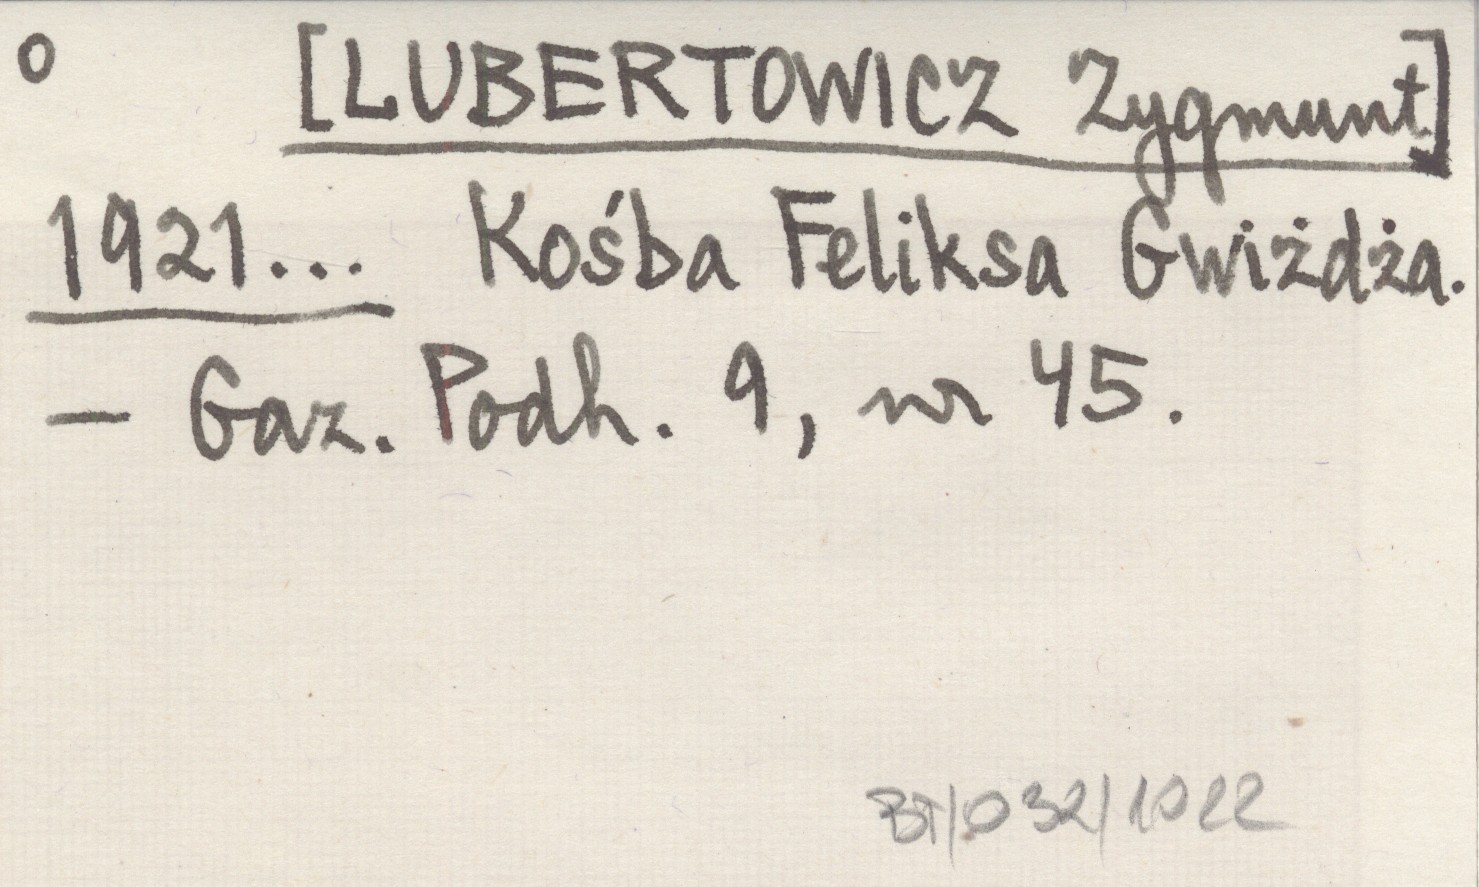 o [LUBERTOWICZ Zygmunt]
1921... Kośba Feliksa Gwiżdża.
— Gaz. Podh. 9, nr 45.
BT/032/1022